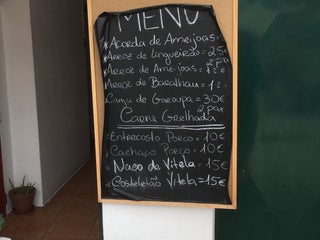 MENU
Açorda de Ameijoas
Arroz de Lingueirão = 25€
2 pax
Arroz de Ameijoas =
Arroz de Bacalhau =
Cama de Garoupa = 30€
2 pax
Carne Grelhada
Entrecosto Porco = 10€
Cachaço Porco = 10€
Naco de Vitela = 15€
Costeletão Vitela = 15€